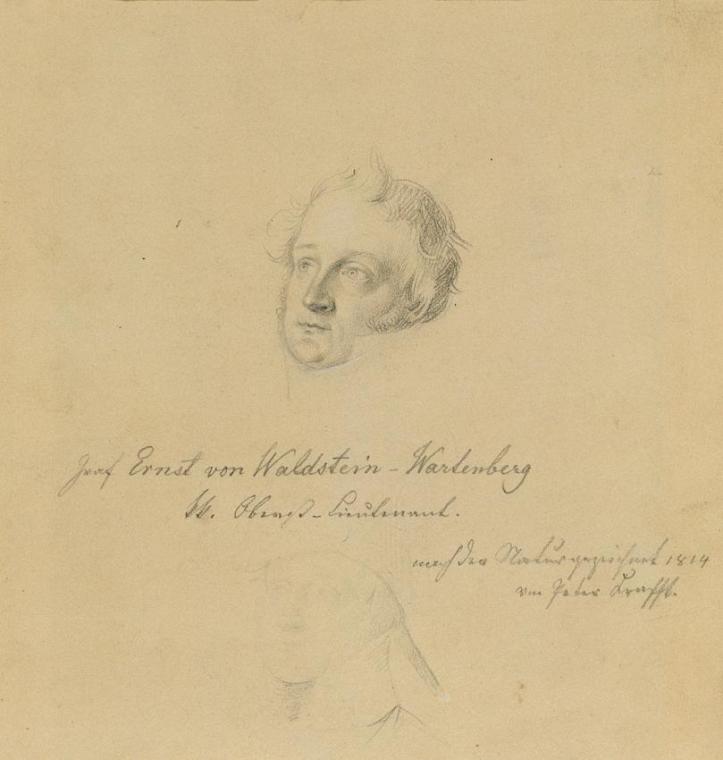 Graf Ernst von Waldstein-Wartenberg
kk. Oberst-Lieutenant.
nach der Natur gezeichnet 1814
von Peter Krafft.